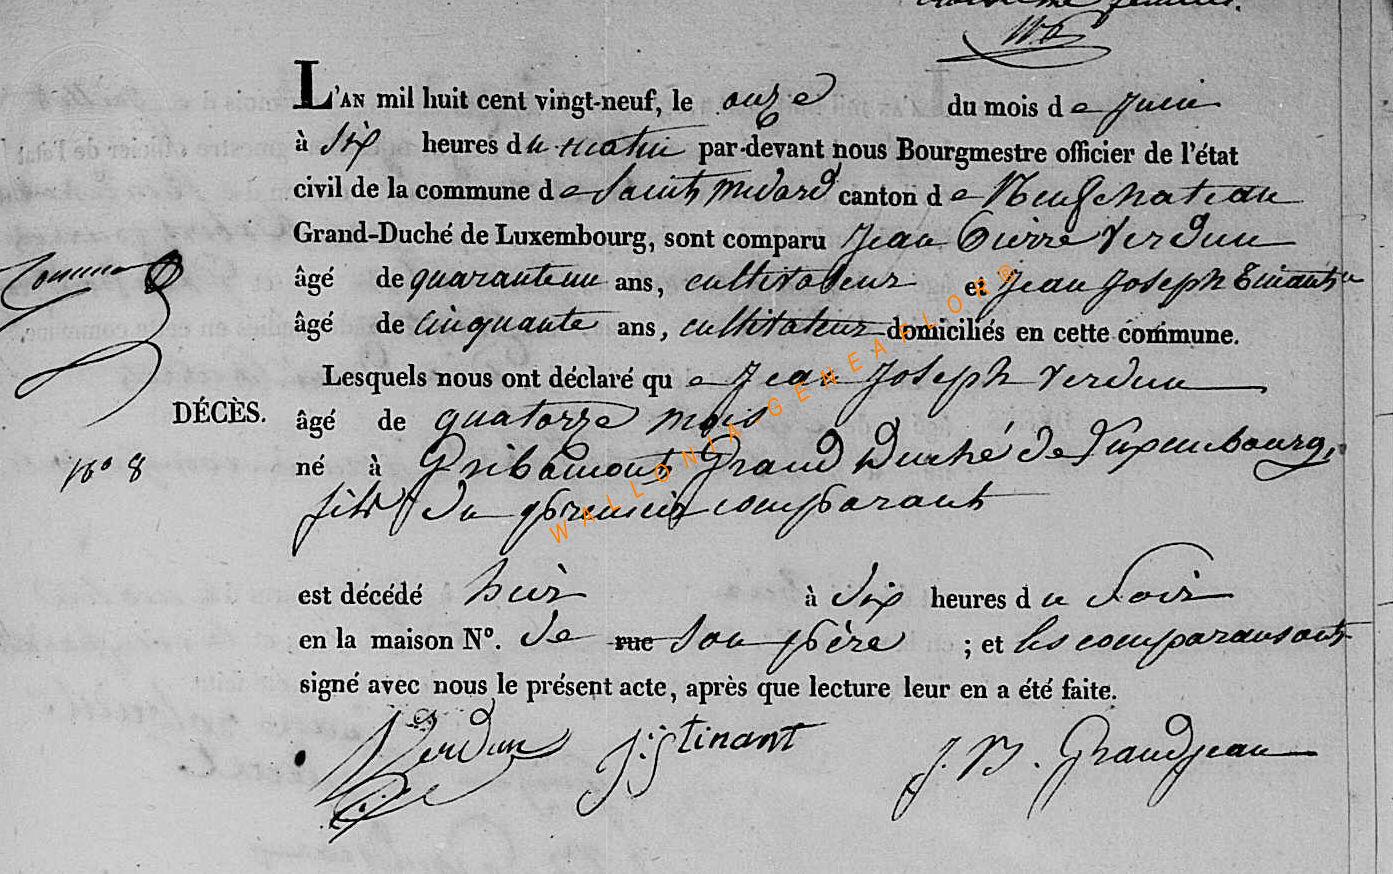 L'AN mil huit cent vingt-neuf, le onze du mois de Juin
à six heures du matin par-devant nous Bourgmestre officier de l'état
civil de la commune de Saint Médard canton de Neufchateau
Grand-Duché de Luxembourg, sont comparu Jean Pierre Verdun
âgé de quarante un ans, cultivateur et Jean Joseph
âgé de cinquante ans, cultivateur domiciliés en cette commune.
Lesquels nous ont déclaré que Jean Joseph Verdun
DÉCÈS.
âgé de quatorze mois
No 8
né à Gribomont Grand Duché de Luxembourg,
fils du premier comparant
est décédé hier à six heures du soir
en la maison No. de rue son père ; et les comparans ont
signé avec nous le présent acte, après que lecture leur en a été faite.
Verdun J:J Stinant J. B. Grandjean
WALLONIA GENEAFLORE